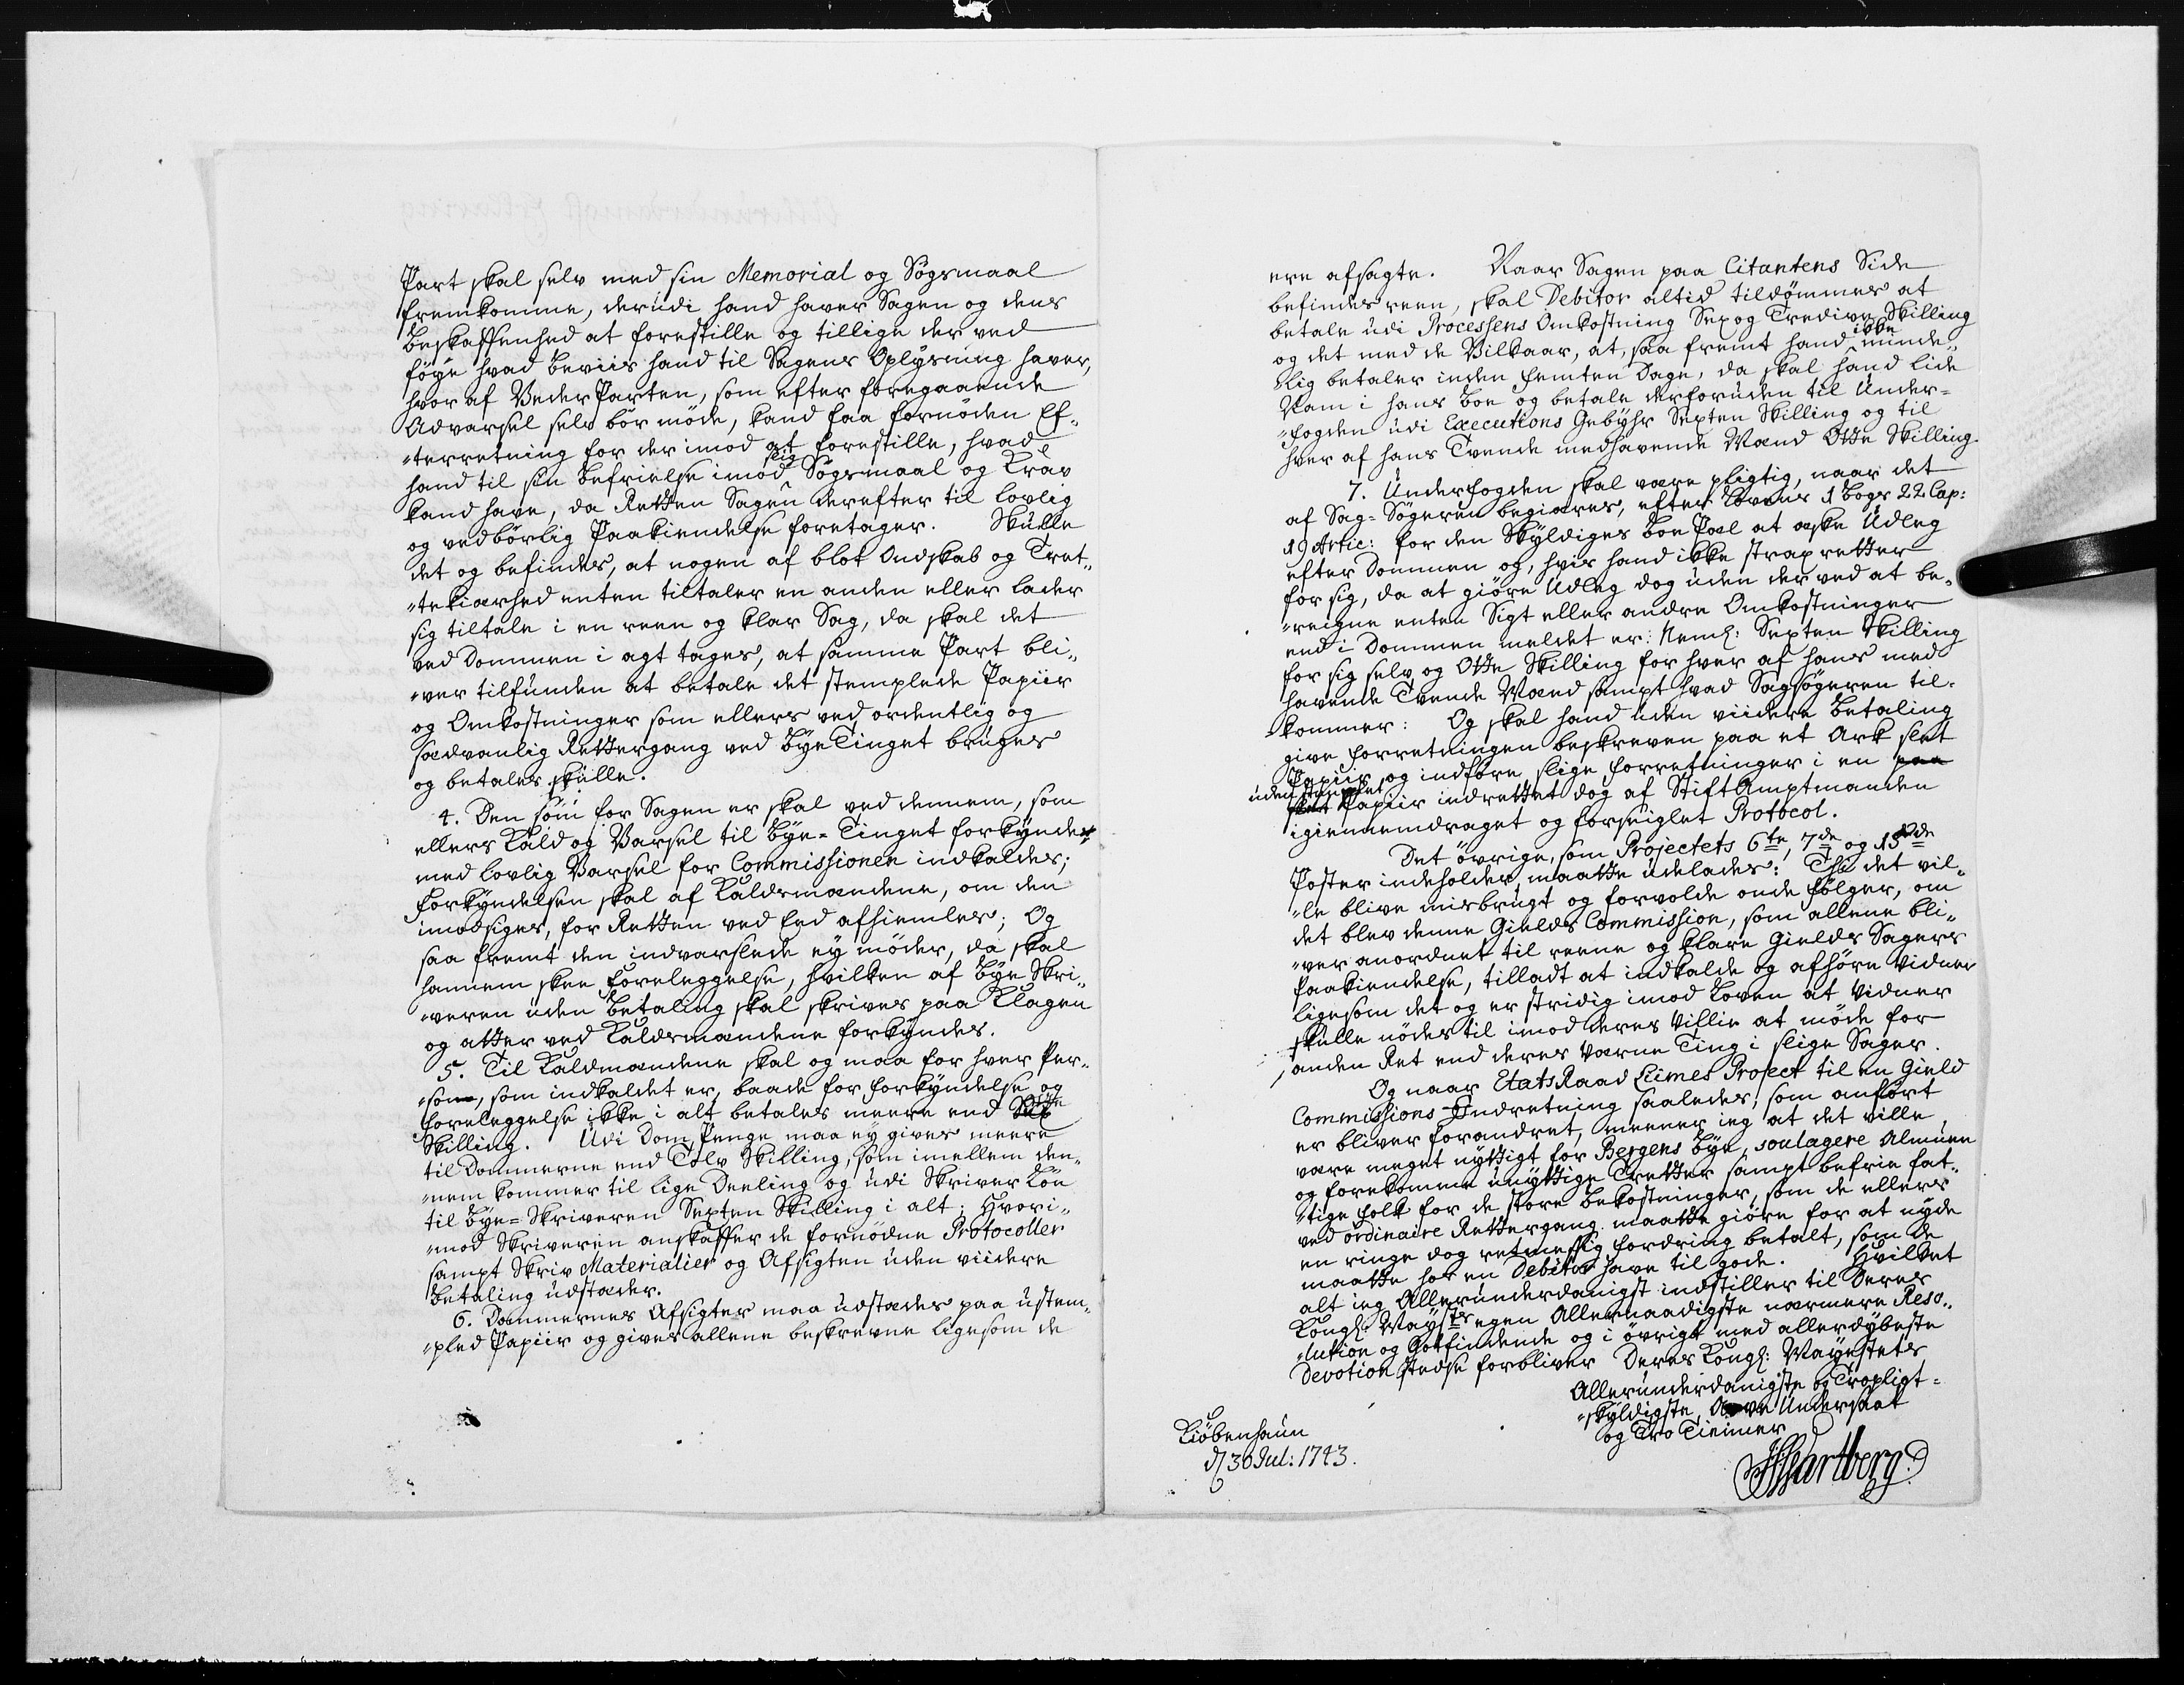 Part skal selv med sin Memorial og Søgsmaal
fremkomme, derudi hand haver Sagen og dens
Beskaffenhed at forestille og tillige der ved
føye hvad Beviis hand til Sagens Oplysning haver,
hvor af Veder Parten, som efter foregaaende
Advarsel selv bør møde, kand faa fornøden Ef-
"terretning for der imod at forestille, hvad
hand til sin Befrielse imod sig Søgsmaal og Krav
kand have, da Retten Sagen derefter til lovlig
og vedbørlig Paakiendelse foretager. Skulle
det og befindes, at nogen af blot Ondskab og Tret-
"tekiærhed enten tiltaler en anden eller lader
sig tiltale i en reen og klar Sag, da skal det
ved Dommen i agt tages, at samme Part bli-
"ver tilfunden at betale det stemplede Papiir
og Omkostninger som ellers ved ordentlig og
sædvanlig Rettergang ved Bye Tinget bruges
og betales skulle.
4. Den som for Sagen er skal ved dennem, som
ellers Kald og Varsel til Bye-Tinget forkynder
med lovlig Varsel for Commissionen indkaldes;
Forkyndelsen skal af Kaldsmændene, om den
imodsiges, for Retten ved Eed afhiemles; Og
saa fremt den indvarslede ey møder, da skal
hannem skee Foreleggelse, hvilken af Bye Skri-
"veren uden Betaling skal skrives paa Klagen
og atter ved Kaldsmændene forkyndes.
5. Til Kaldmændene skal og maa for hver Per-
"son, som indkaldet er, baade for Forkyndelse og
Foreleggelse ikke i alt betales meere end
Skilling. Udi Dom Penge maa ey gives meere
til Dommerne end Tolv Skilling, som imellem den-
"nem kommer til lige Deeling og udi Skriver Løn
til Bye-Skriveren Sexten Skilling i alt; Hvori-
"mod Skriveren anskaffer de fornødne Protocoller
sampt Skriv Materialier og Afsigten uden viidere
Betaling udstæder.
6. Dommernes Afsigter maa udstædes paa ustem-
"pled Papiir og gives allene beskrevne ligesom de
ere afsagte. Naar Sagen paa Citantens Side
befindes reen, skal Debitor altid tildømmes at
betale udi Processens Omkostning Sex og Tredive Skilling
og det med de Vilkaar, at, saa fremt hand ikke minde-
"lig betaler inden femten Dage, da skal hand lide
Nam i hans Boe og betale derforuden til Under-
"fogden udi Executions Gebyhr Sexten Skilling og til
hver af hans Tvende medhavende Mænd Otte Skilling.
7. Underfogden skal være pligtig, naar det
af Sag-Søgeren begiæres, efter Lovens 1 Bogs 22 Cap:
19 Artic: for den Skyldiges Boe Pæl at æske Udleg
efter Dommen og, hvis hand ikke strax retter
for sig, da at giøre Udleg dog uden der ved at be-
"reigne enten Sigt eller andre Omkostninger
end i Dommen meldet er: Neml: Sexten Skilling
for sig selv og Otte Skilling for hver af hans med
havende Tvende Mænd sampt hvad Sagsøgeren til-
kommer: Og skal hand uden viidere Betaling
give Forretningen beskreven paa et Ark slet
Papiir og indføre slige Forretninger i en paa
uden stemplet slet Papiir indrettet dog af Stift Amptmanden
igiennemdraget og forseiglet Protocol.
Det øvrige, som Projectets 6te, 7de og 13de
Poster indeholder maatte udelades: Thi det vil-
"le blive misbrugt og forvolde onde Følger, om
det blev denne Gields Commission, som allene bli-
"ver anordnet til reene og klare Gields Sagers
Paakiendelse, tilladt at indkalde og afhøre Vidner
ligesom det og er stridig imod Loven at Vidner
skulle nødes til imod deres Villie at møde for
anden Ret end deres Værne Ting i slige Sager.
Og naar Etats Raad Liimes Project til en Gield
Commissions-Indretning saaledes, som anført
er bliver forandret, meener ieg at det ville
være meget nyttigt for Bergens Bye, soulagere Almuen
og forekomme unyttige Tretter sampt befrie fat-
"tige Folk for de store Bekostninger, som de ellers
ved ordinaire Rettergang maatte giøre for at nyde
en ringe dog retmessig Fordring betalt, som de
maatte hos en Debitor have til gode. Hvilket
alt ieg Allerunderdanigst indstiller til Deres
Kongl: Mayts egen Allernaadigste nærmere Reso-
"lution og Gotfindende og i øvrigt med allerdybeste
Devotion stedse forbliver Deres Kongl: Mayestets
Allerunderdanigste og Tropligt-
"skyldigste Arve Undersaat
og Tro Tienner
Kiøbenhaun
d. 30 Jul: 1743.
Hartberg